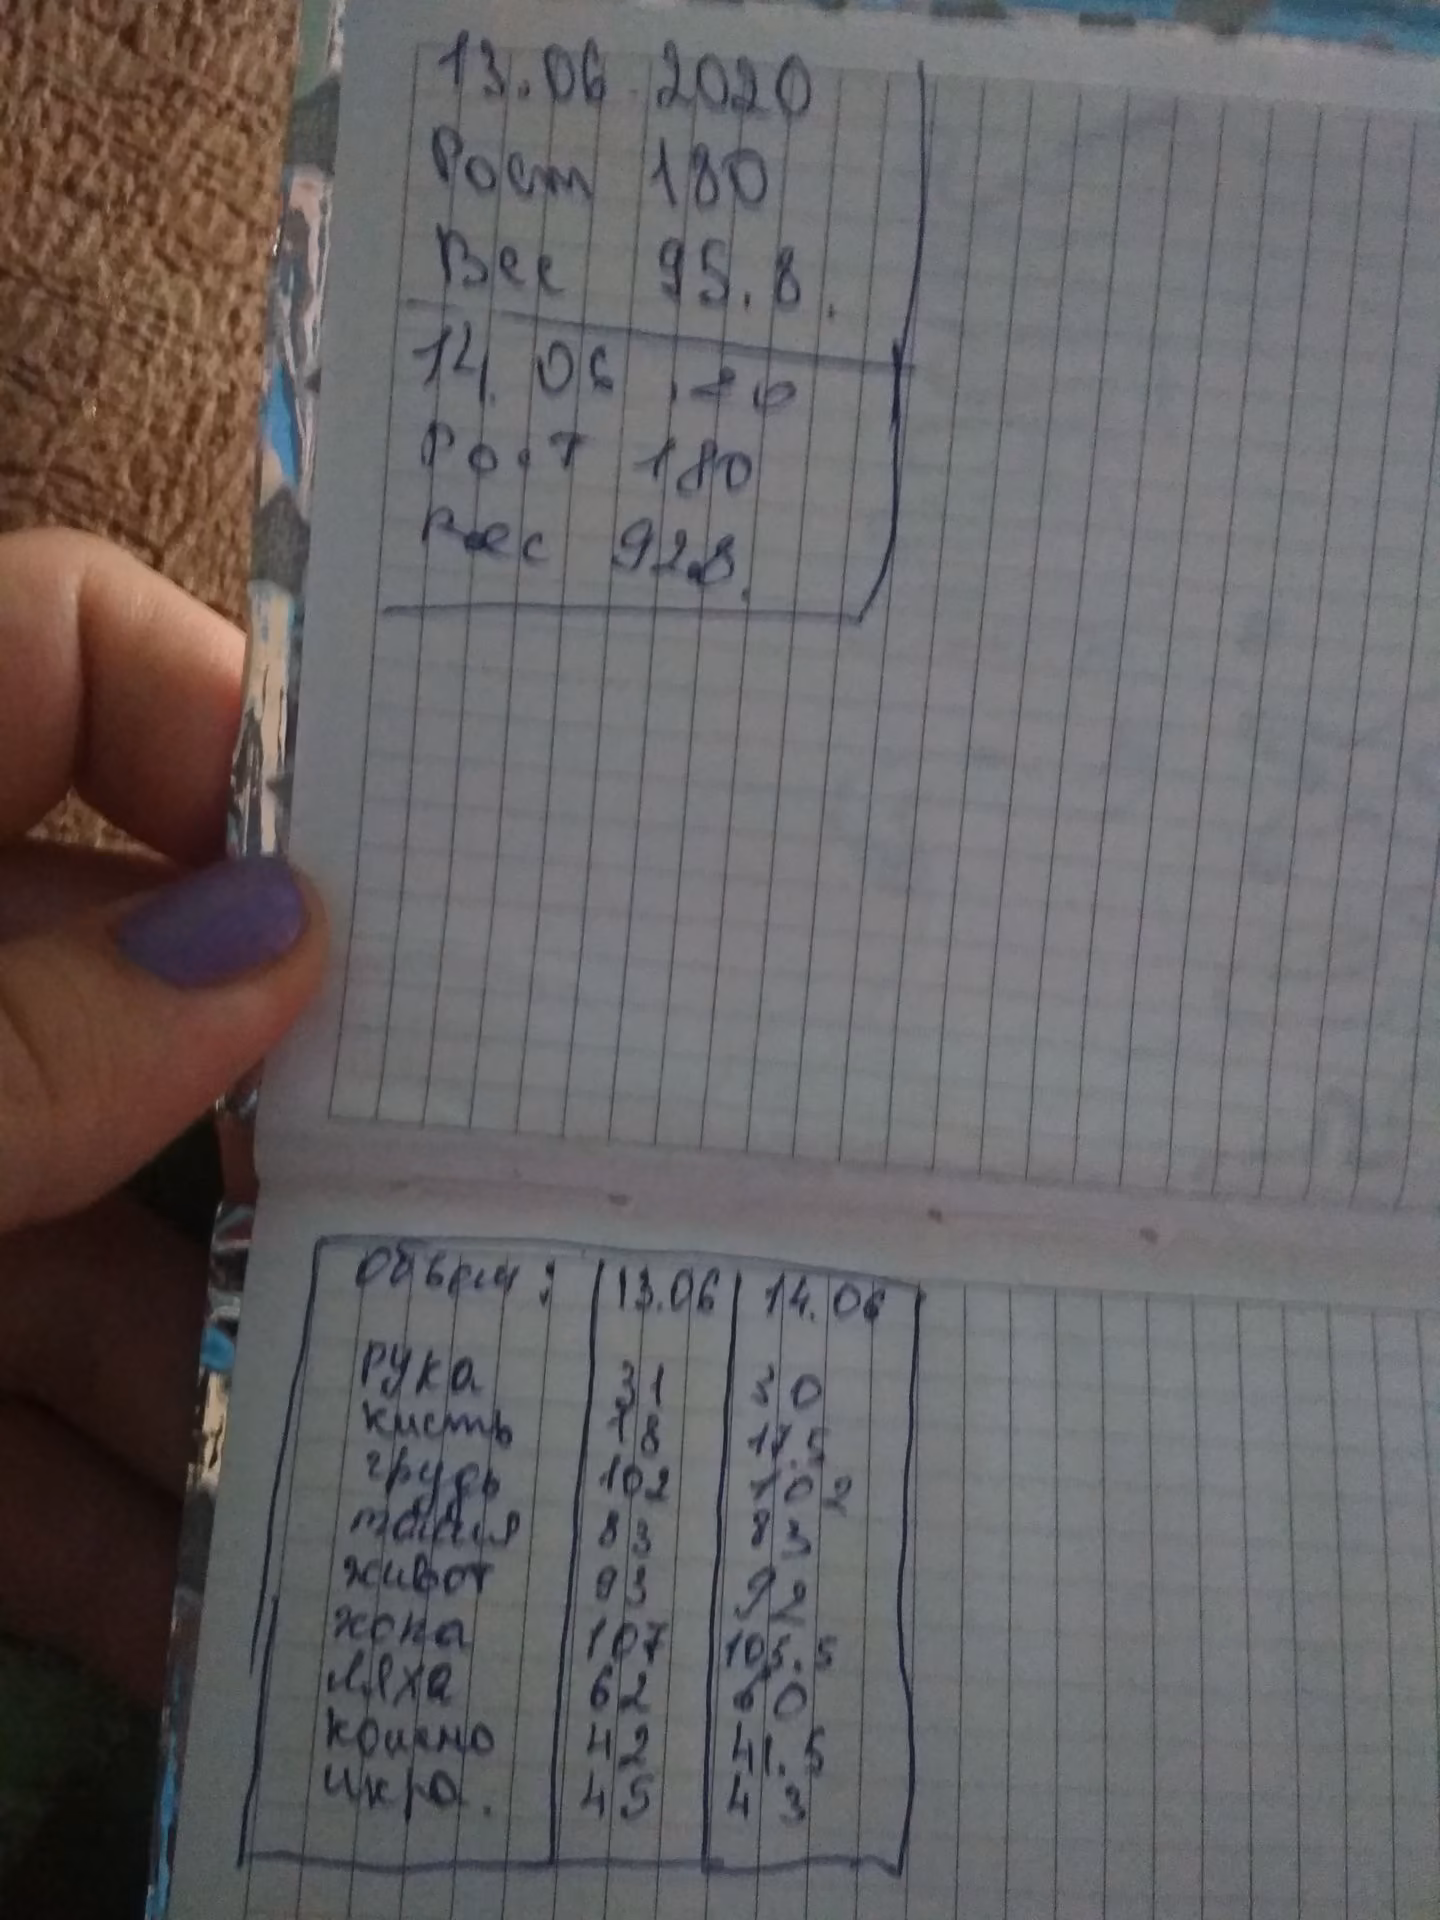 13.06.2020
Рост 180
Вес 95.8.
14.06.20
Рост 180
Вес 92.8.
Объем: 13.06 14.06
рука 31 30
кисть 18 17.5
грудь 102 102
талия 83 83
живот 93 92
жопа 107 105.5
ляха 62 60
колено 42 41.5
икра. 45 43